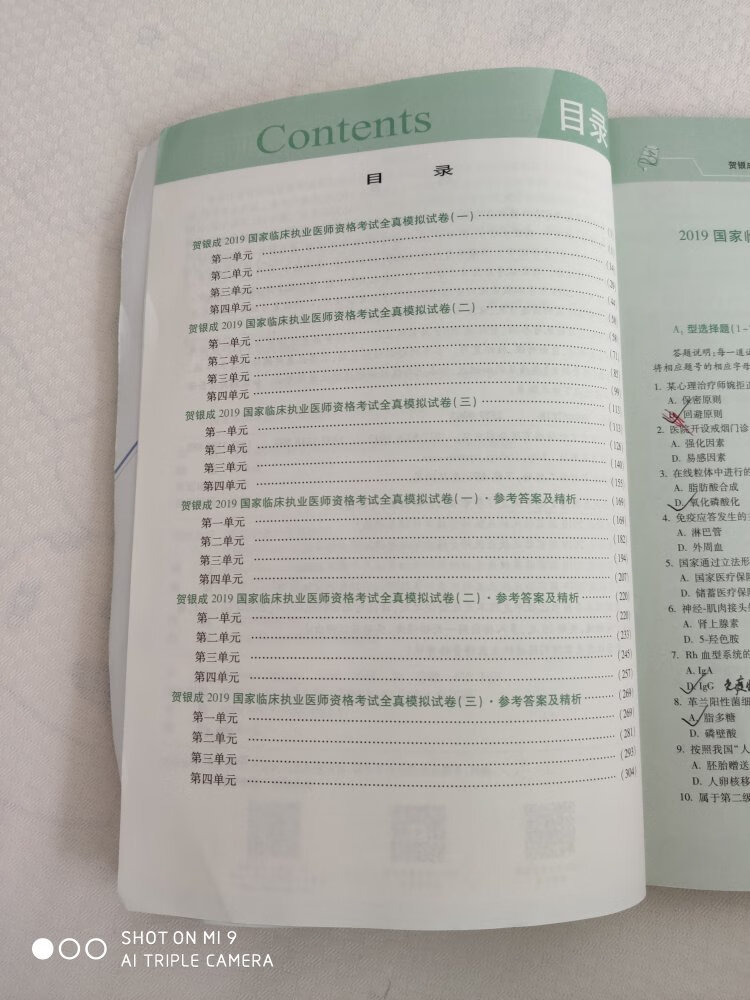 Contents
目录
目 录
贺银成 2019 国家临床执业医师资格考试全真模拟试卷(一)
第一单元
第二单元
第三单元
第四单元
贺银成 2019 国家临床执业医师资格考试全真模拟试卷(二)
第一单元
第二单元 (71)
第三单元
第四单元 (99)
贺银成 2019 国家临床执业医师资格考试全真模拟试卷(三) (113)
第一单元 (113)
第二单元 (126)
第三单元 (140)
第四单元 (155)
贺银成 2019 国家临床执业医师资格考试全真模拟试卷(一)·参考答案及精析 (169)
第一单元 (169)
第二单元 (182)
第三单元 (194)
第四单元 (207)
贺银成 2019 国家临床执业医师资格考试全真模拟试卷(二)·参考答案及精析 (220)
第一单元 (220)
第二单元 (233)
第三单元 (245)
第四单元 (257)
贺银成 2019 国家临床执业医师资格考试全真模拟试卷(三)·参考答案及精析 (269)
第一单元 (269)
第二单元 (281)
第三单元 (293)
第四单元 (304)
贺银成
2019 国家临
A₁ 型选择题(1~
答题说明:每一道
将相应题号的相应字母
1. 某心理治疗师婉拒
A. 保密原则
回避原则
2. 医院开设戒烟门诊
A. 强化因素
D. 易感因素
3. 在线粒体中进行的
A. 脂肪酸合成
D. 氧化磷酸化
4. 免疫应答发生的
A. 淋巴管
D. 外周血
5. 国家通过立法形
A. 国家医疗保
D. 储蓄医疗保
6. 神经-肌肉接头
A. 肾上腺素
D. 5-羟色胺
7. Rh 血型系统的
A. IgA
D. IgG
8. 革兰阳性菌细
A. 脂多糖
D. 磷壁酸
9. 按照我国“人
A. 胚胎赠送
D. 人卵核移
10. 属于第二级
SHOT ON MI 9
AI TRIPLE CAMERA